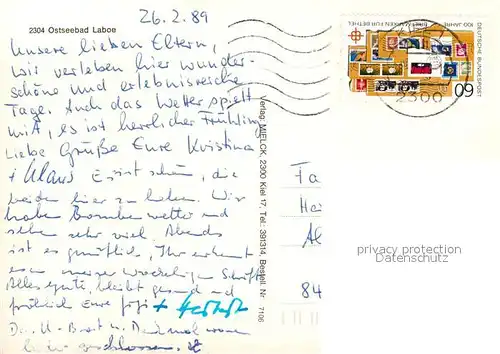 26.2.89
2304 Ostseebad Laboe
Unsere lieben Eltern,
wir verleben hier wunder-
schöne und erlebnisreiche
Tage. Auch das Wetter spielt
mit, es ist herrlicher Frühling
Liebe Grüße Eure Kristina
+ Klaus Es ist schön, die
beiden hier zu haben. Wir
haben Bombenwetter und
sehen sehr viel. Abends
ist es gemütlich, Ihr erkennt
es an meiner Schrift
Alles gute, bleibt gesund und
fröhlich Eure + Herbert
Das U-Boot u. Denkmal waren
geschlossen.
Verlag: MIELCK, 2300 Kiel 17, Tel.: 391314, Bestell. Nr. 7106
DEUTSCHE BUNDESPOST
100 JAHRE BRIEFMARKEN FÜR BETHEL
60
2300
Fa
Ha
Al
84
privacy protection
Datenschutz